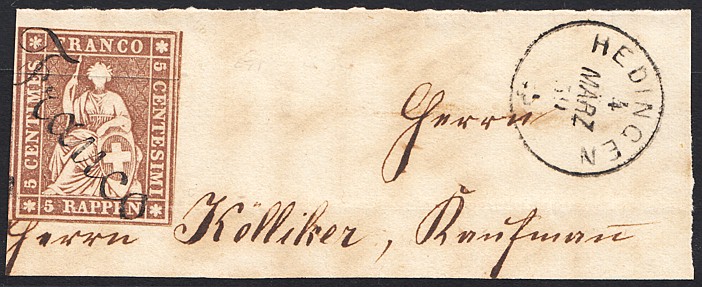 FRANCO
5 CENTIMES
5 CENTESIMI
5 RAPPEN
Franco
HEDINGEN
4
MÄRZ
Herrn
Herrn Kölliker, Kaufmañ